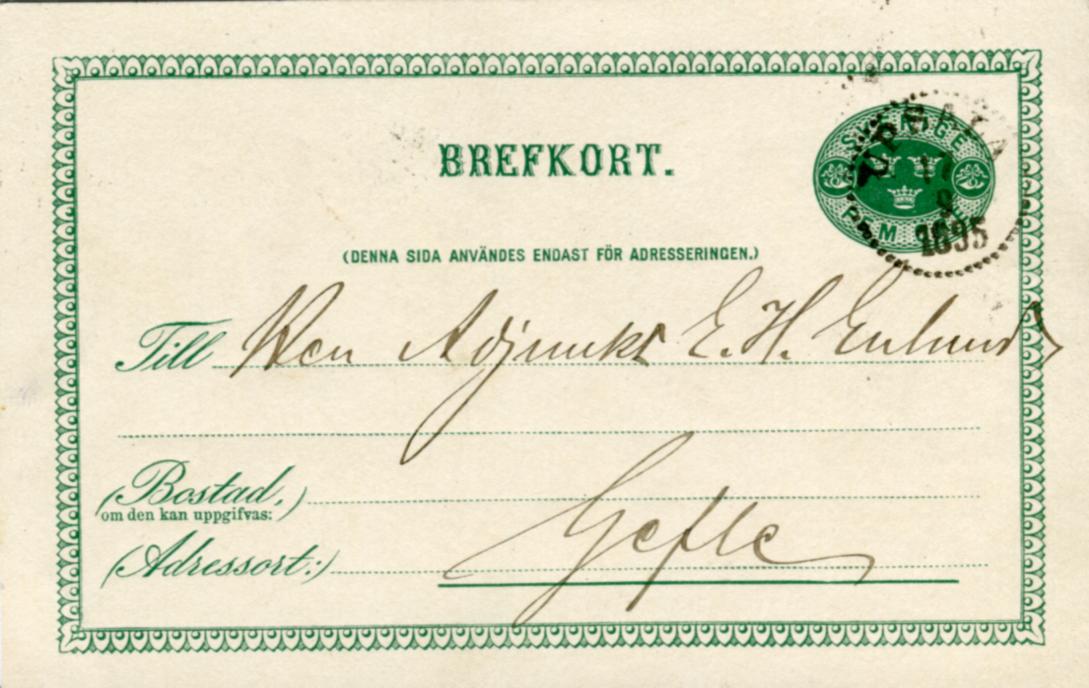 BREFKORT.
SVERIGE
FEM
UPSALA
17
9
1895
(DENNA SIDA ANVÄNDES ENDAST FÖR ADRESSERINGEN.)
Till Herr Adjunkt E. H. Enlund
(Bostad,)
om den kan uppgifvas:
(Adressort:) Gefle